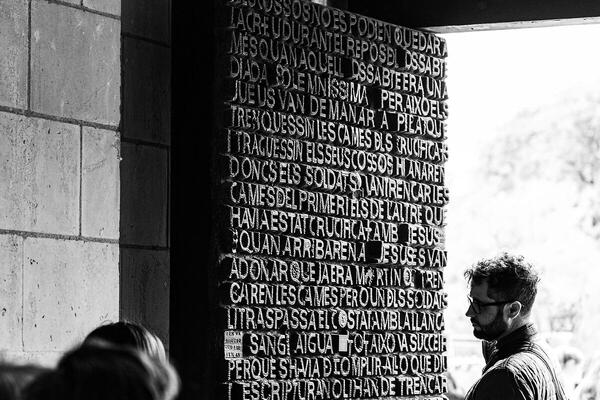 SOS NO ES PODEN QUEDAR A
LA CREU DURANT EL REPOS DEL DISSABT
MES QUAN AQUELL DISSABTE ERA UNA
DIADA SOLEMNISSIMA PER AIXO EL
JUEUS VAN DEMANAR A PILAT QUE
TRENQUESSIN LES CAMES DELS CRUCIFICAT
I TRAGUESSIN ELS SEUS COSSOS HI ANAREN
DONCS ELS SOLDATS VAN TRENCAR LES
CAMES DEL PRIMER I ELS DE L'ALTRE QUE
HAVIA ESTAT CRUCIFICAT AMB JESUS
QUAN ARRIBAREN A JESUS ES VAN
ADONAR QUE JA ERA MORT I NO TREN
CAREN LES CAMES PERO UN DELS SOLDATS
LI TRASPASSA EL COSTAT AMB LA LLANÇA
SANG I AIGUA TOT AIXO VA SUCCEIR
PERQUE S'HAVIA DE COMPLIR ALLO QUE DI
ESCRIPTURA NO LI HAN DE TRENCAR